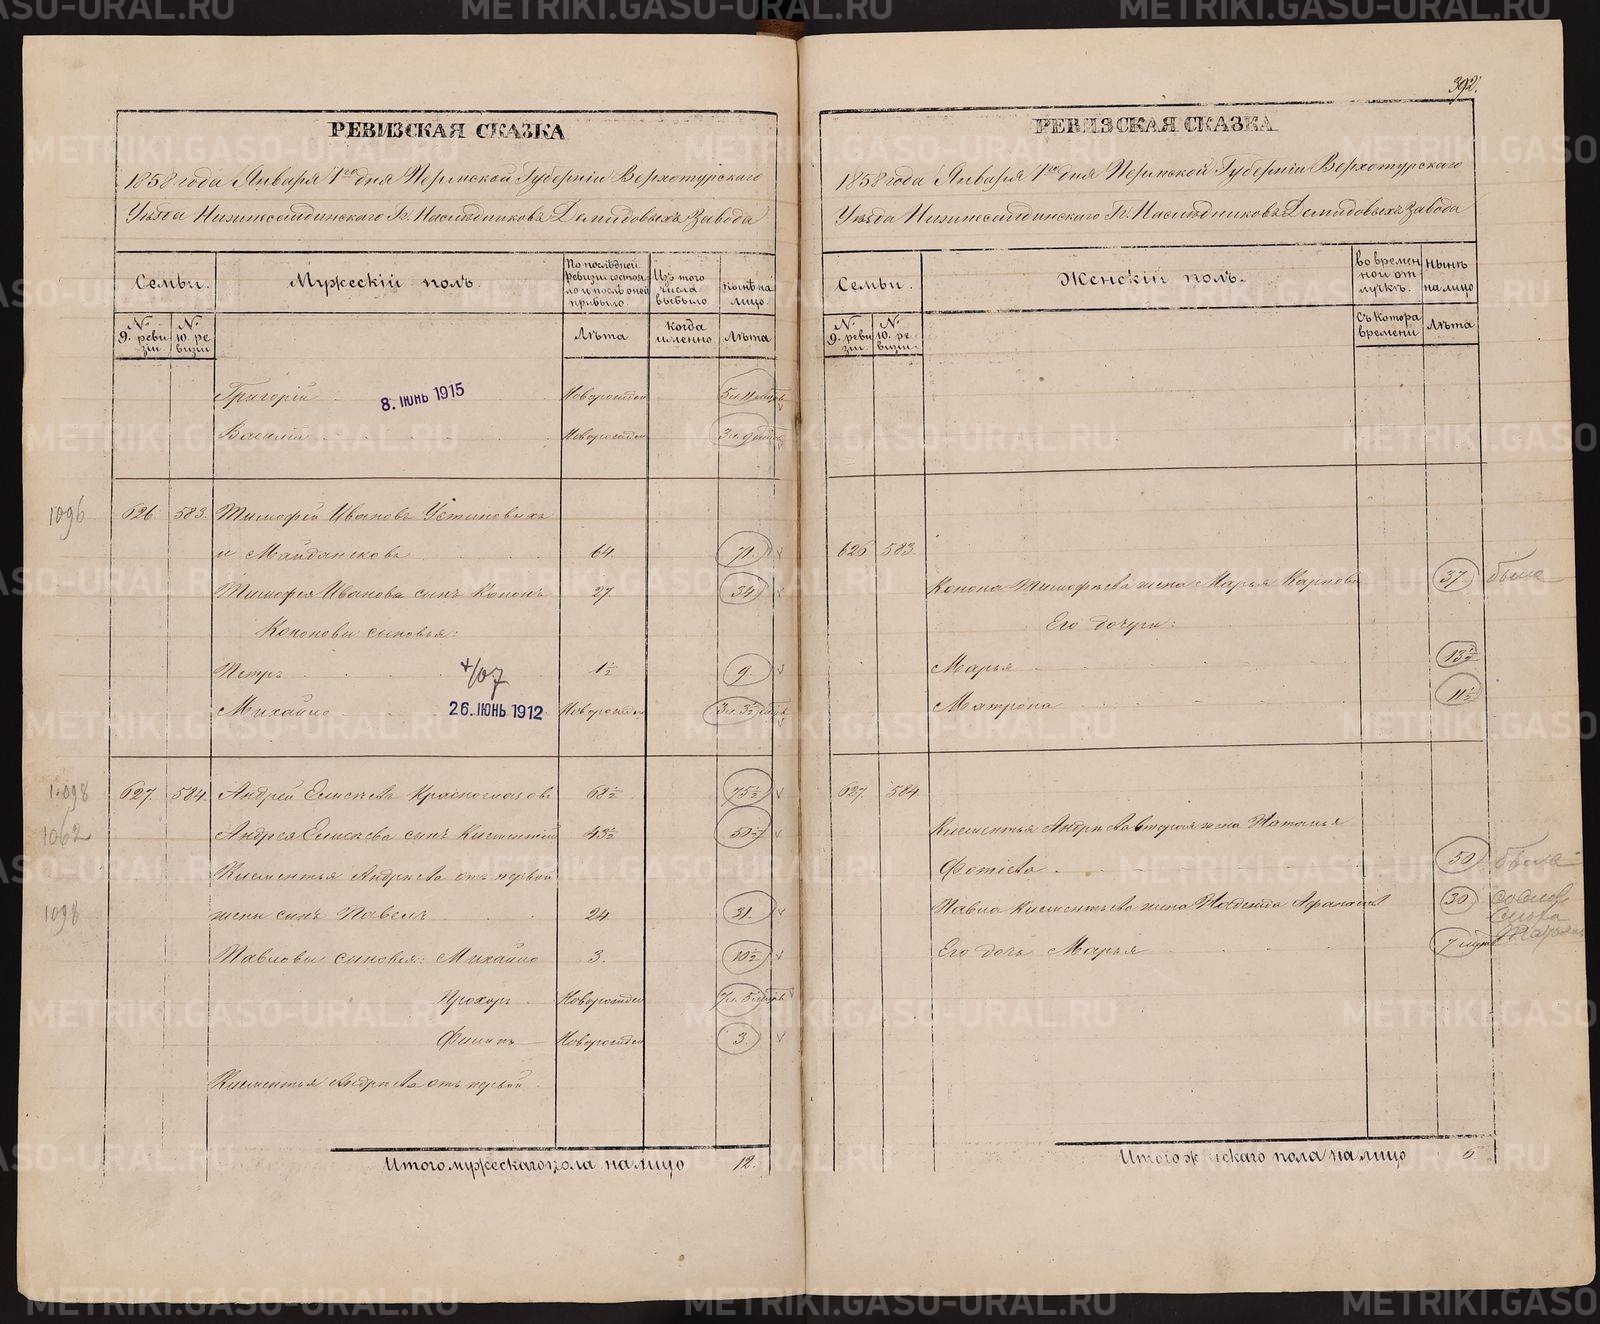 392.
РЕВИЗСКАЯ СКАЗКА
1858 года Января 1го дня Пермской Губерніи Верхотурскаго
Уѣзда Нижнесалдинскаго Гг. Наслѣдниковъ Демидовыхъ Завода
Семьи.
Мужескій полъ.
По послѣдней ревизіи состояло и послѣ оной прибыло.
Изъ того числа выбыло
Нынѣ на лицо.
№ 9. ревизіи
№ 10. ревизіи
Лѣта
Когда именно
Лѣта
Григорій Новорожден
8. ІЮНЬ 1915
Василій Новорожден
1096 626. 583. Тимофей Ивановъ Устиновыхъ
и Майдансковъ 64. 71.
Тимофея Иванова сынъ Кононъ 27. 34
Кононовы сыновья:
Петръ 1½ 9.
+/07
Михайло Новорожден
26. ІЮНЬ 1912
1098 627. 584. Андрей Елисѣевъ 68½ 75½
1062 Андрея Елисѣева сынъ Клементій 43½ 50½
Клементья Андрѣева отъ первой
1098 жены сынъ Павелъ 24. 31.
Павловы сыновья: Михайло 3. 10½
Прохоръ Новорожден
Филипъ Новорожден 3.
Клементья Андрѣева отъ первой
Итого мужескаго пола на лицо 12.
РЕВИЗСКАЯ СКАЗКА
1858 года Января 1го дня Пермской Губерніи Верхотурскаго
Уѣзда Нижнесалдинскаго Гг. Наслѣдниковъ Демидовыхъ Завода
Семьи.
Женскій полъ.
Во временной отлучкѣ.
Нынѣ на лицо
№ 9. ревизіи
№ 10. ревизіи.
Съ котора времени
Лѣта
626 583.
Конона Тимофѣева жена Марья Карпова 37
Его дочери:
Марья 13½
Матрона 11½
627. 584.
Клементья Андрѣева вторая жена Наталья
Фотіева 50
Павла Клементьева жена 30
Его дочь Марья
Итого женскаго пола на лицо 6.
METRIKI.GASO-URAL.RU